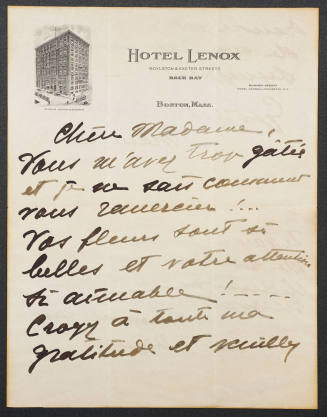 HOTEL LENOX
BOYLSTON & EXETER STREETS
BACK BAY
BOSTON, MASS.
Chère Madame,
Vous m'avez trop gâtée
et je ne sais comment
vous remercier !...
Vos fleurs sont si
belles et votre attention
si aimable ! - - - -
Croyez à toute ma
gratitude et veuillez